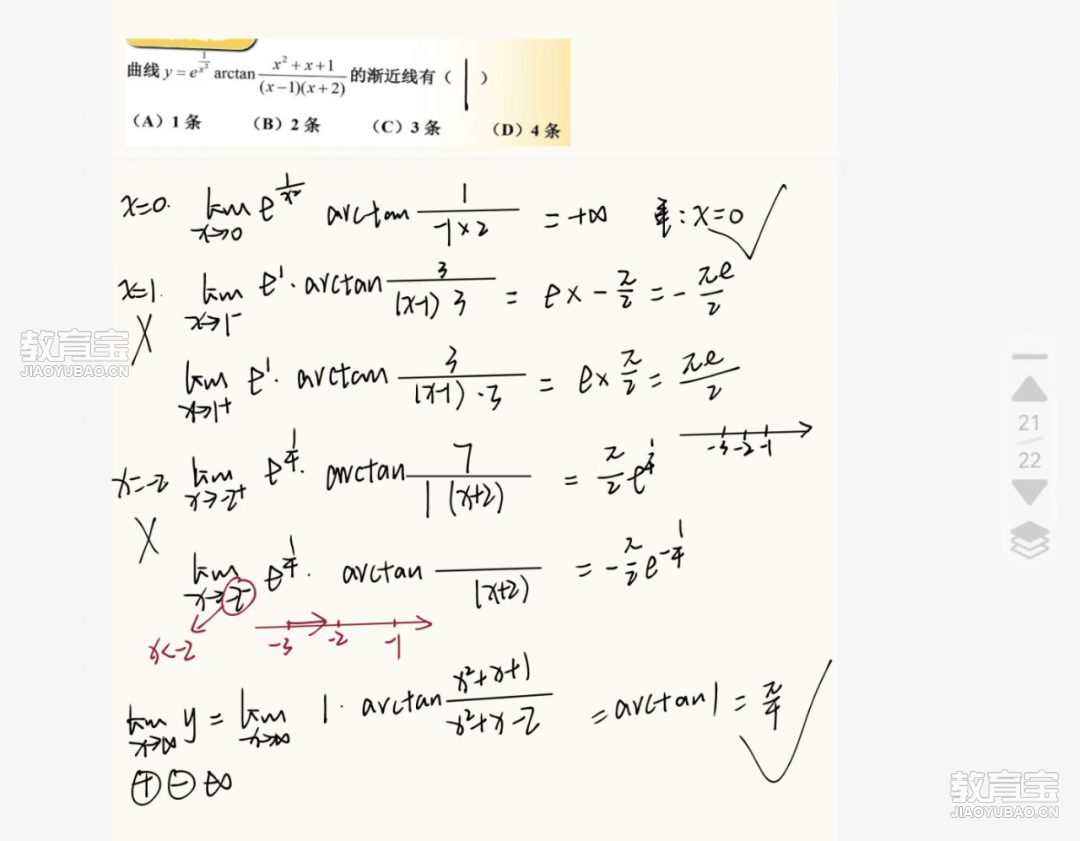 曲线 y = e^{\frac{1}{x^2}} arctan \frac{x^2+x+1}{(x-1)(x+2)} 的渐近线有（ | ）
（A）1 条 （B）2 条 （C）3 条 （D）4 条
x=0. lim_{x→0} e^{\frac{1}{x^2}} arctan \frac{1}{-1×2} = +∞ : x=0
x=1. lim_{x→1^-} e^1 · arctan \frac{3}{(x-1) 3} = e× -\frac{π}{2} = -\frac{πe}{2}
lim_{x→1^+} e^1 · arctan \frac{3}{(x-1)·3} = e×\frac{π}{2} = \frac{πe}{2}
-3 -2 -1
x=-2 lim_{x→-2^+} e^{\frac{1}{4}} · arctan \frac{7}{1 (x+2)} = \frac{π}{2} e^{\frac{1}{4}}
lim_{x→-2^-} e^{\frac{1}{4}} · arctan \frac{}{(x+2)} = -\frac{π}{2} e^{-\frac{1}{4}}
x<-2 -3 -2 -1
lim_{x→∞} y = lim_{x→∞} 1 · arctan \frac{x^2+x+1}{x^2+x-2} = arctan 1 = \frac{π}{4}
⊕ ⊖ ∞
21
22
教育宝
JIAOYUBAO.CN
教育宝
JIAOYUBAO.CN